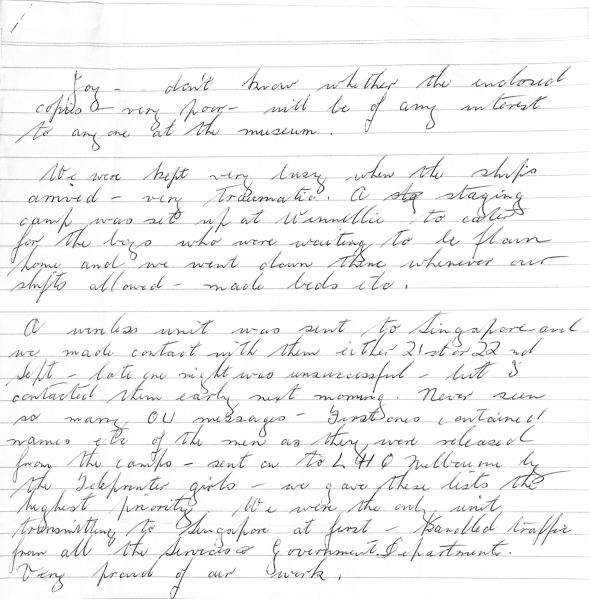 1
Joy - don't know whether the enclosed
copies - very poor - will be of any interest
to anyone at the museum.
We were kept very busy when the ships
arrived - very traumatic. A staging
camp was set up at Winnellie to cater
for the boys who were waiting to be flown
home and we went down there whenever our
shifts allowed - made beds etc.
A wireless unit was sent to Singapore and
we made contact with them either 21st or 22nd
Sept - late one night was unsuccessful - but I
contacted them early next morning. Never seen
so many OU messages - First ones contained
names etc of the men as they were released
from the camps - sent on to LHQ Melbourne by
the Teleprinter girls - we gave these lists the
highest priority. We were the only unit
transmitting to Singapore at first - handled traffic
from all the Services & Government Departments.
Very proud of our work.